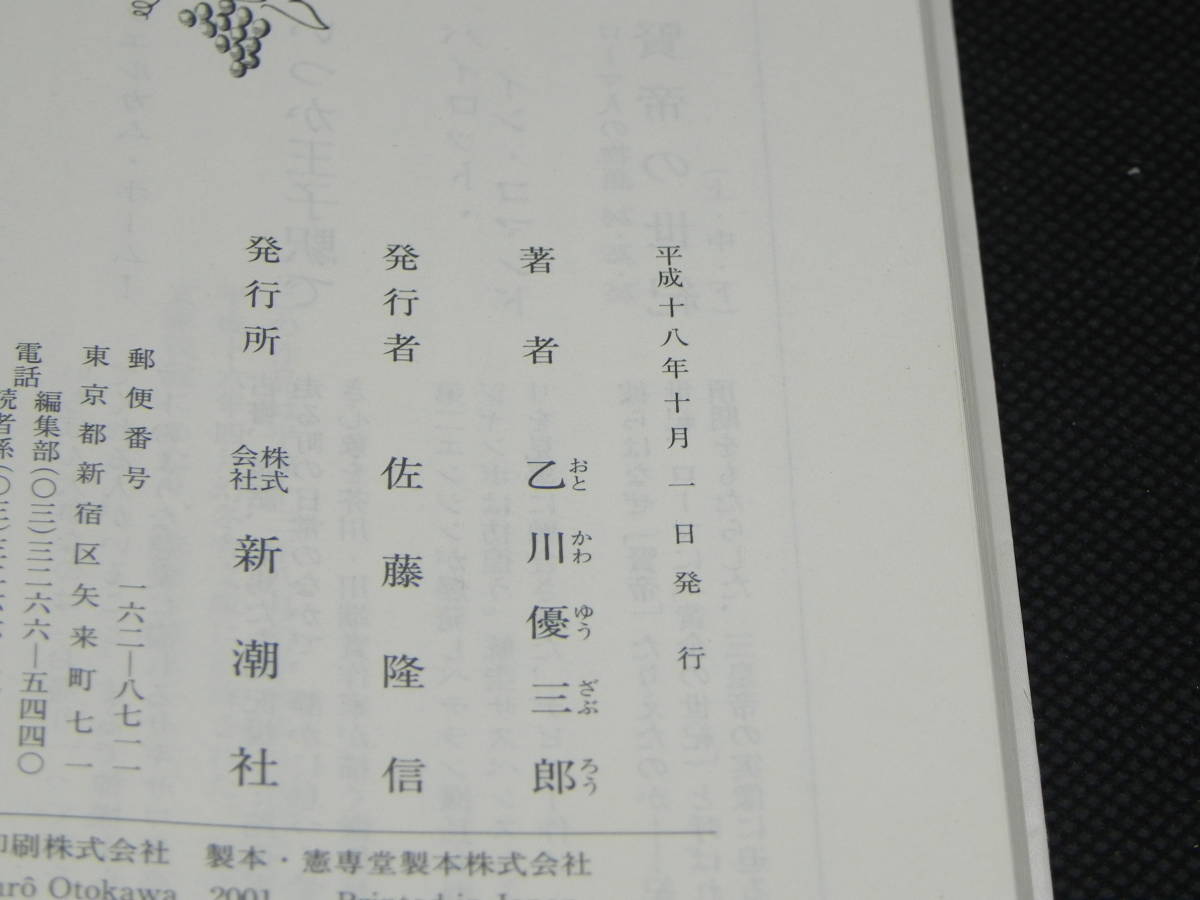 平成十八年十月一日発行
著者 乙川優三郎
おとかわゆうざぶろう
発行者 佐藤隆信
発行所 株式会社 新潮社
郵便番号 一六二―八七一一
東京都新宿区矢来町七一
電話 編集部(〇三)三二六六―五四四〇
読者係(〇三)三二六六
印刷株式会社 製本・憲専堂製本株式会社
Otokawa 2001 Printed in Japan